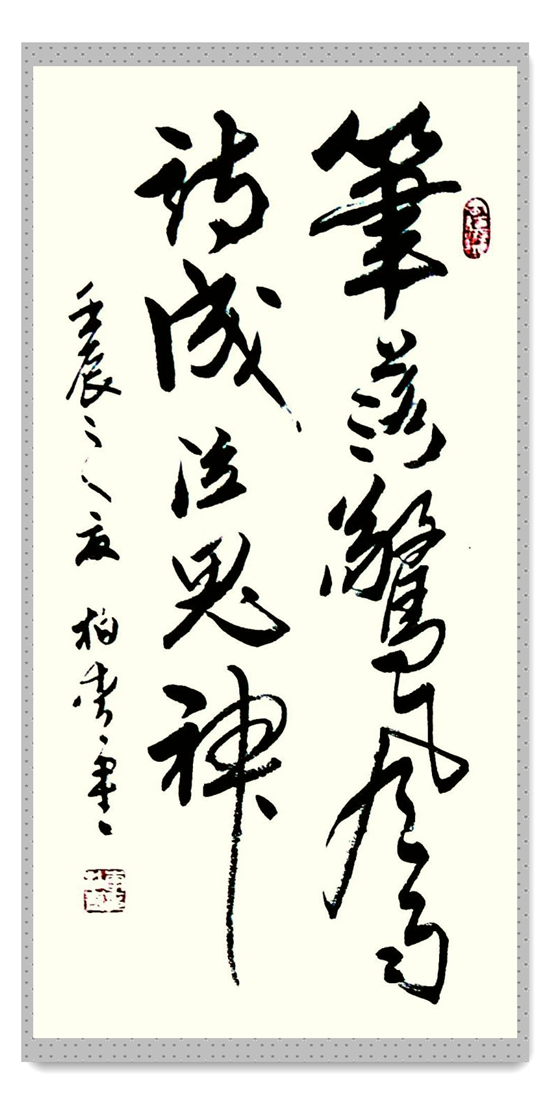 筆落驚風雨
詩成泣鬼神
壬辰之夏 柏 書